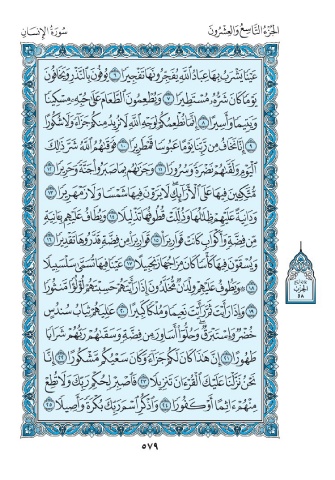 الجزء التاسع والعشرون
سورة الإنسان
عَيْنًا يَشْرَبُ بِهَا عِبَادُ اللَّهِ يُفَجِّرُونَهَا تَفْجِيرًا ٦ يُوفُونَ بِالنَّذْرِ وَيَخَافُونَ
يَوْمًا كَانَ شَرُّهُ مُسْتَطِيرًا ٧ وَيُطْعِمُونَ الطَّعَامَ عَلَىٰ حُبِّهِ مِسْكِينًا
وَيَتِيمًا وَأَسِيرًا ٨ إِنَّمَا نُطْعِمُكُمْ لِوَجْهِ اللَّهِ لَا نُرِيدُ مِنكُمْ جَزَاءً وَلَا شُكُورًا
٩ إِنَّا نَخَافُ مِن رَّبِّنَا يَوْمًا عَبُوسًا قَمْطَرِيرًا ١٠ فَوَقَىٰهُمُ اللَّهُ شَرَّ ذَٰلِكَ
الْيَوْمِ وَلَقَّىٰهُمْ نَضْرَةً وَسُرُورًا ١١ وَجَزَىٰهُم بِمَا صَبَرُوا جَنَّةً وَحَرِيرًا ١٢
مُّتَّكِئِينَ فِيهَا عَلَى الْأَرَائِكِ لَا يَرَوْنَ فِيهَا شَمْسًا وَلَا زَمْهَرِيرًا ١٣
وَدَانِيَةً عَلَيْهِمْ ظِلَٰلُهَا وَذُلِّلَتْ قُطُوفُهَا تَذْلِيلًا ١٤ وَيُطَافُ عَلَيْهِم بِـَٔانِيَةٍ
مِّن فِضَّةٍ وَأَكْوَابٍ كَانَتْ قَوَارِيرَا ١٥ قَوَارِيرَا مِن فِضَّةٍ قَدَّرُوهَا تَقْدِيرًا ١٦
وَيُسْقَوْنَ فِيهَا كَأْسًا كَانَ مِزَاجُهَا زَنجَبِيلًا ١٧ عَيْنًا فِيهَا تُسَمَّىٰ سَلْسَبِيلًا
١٨ وَيَطُوفُ عَلَيْهِمْ وِلْدَٰنٌ مُّخَلَّدُونَ إِذَا رَأَيْتَهُمْ حَسِبْتَهُمْ لُؤْلُؤًا مَّنثُورًا
١٩ وَإِذَا رَأَيْتَ ثَمَّ رَأَيْتَ نَعِيمًا وَمُلْكًا كَبِيرًا ٢٠ عَٰلِيَهُمْ ثِيَابُ سُندُسٍ
خُضْرٌ وَإِسْتَبْرَقٌ وَحُلُّوا أَسَاوِرَ مِن فِضَّةٍ وَسَقَىٰهُمْ رَبُّهُمْ شَرَابًا
طَهُورًا ٢١ إِنَّ هَٰذَا كَانَ لَكُمْ جَزَاءً وَكَانَ سَعْيُكُم مَّشْكُورًا ٢٢ إِنَّا
نَحْنُ نَزَّلْنَا عَلَيْكَ الْقُرْءَانَ تَنزِيلًا ٢٣ فَاصْبِرْ لِحُكْمِ رَبِّكَ وَلَا تُطِعْ
مِنْهُمْ ءَاثِمًا أَوْ كَفُورًا ٢٤ وَاذْكُرِ اسْمَ رَبِّكَ بُكْرَةً وَأَصِيلًا ٢٥
الحزب
٥٨
٥٧٩